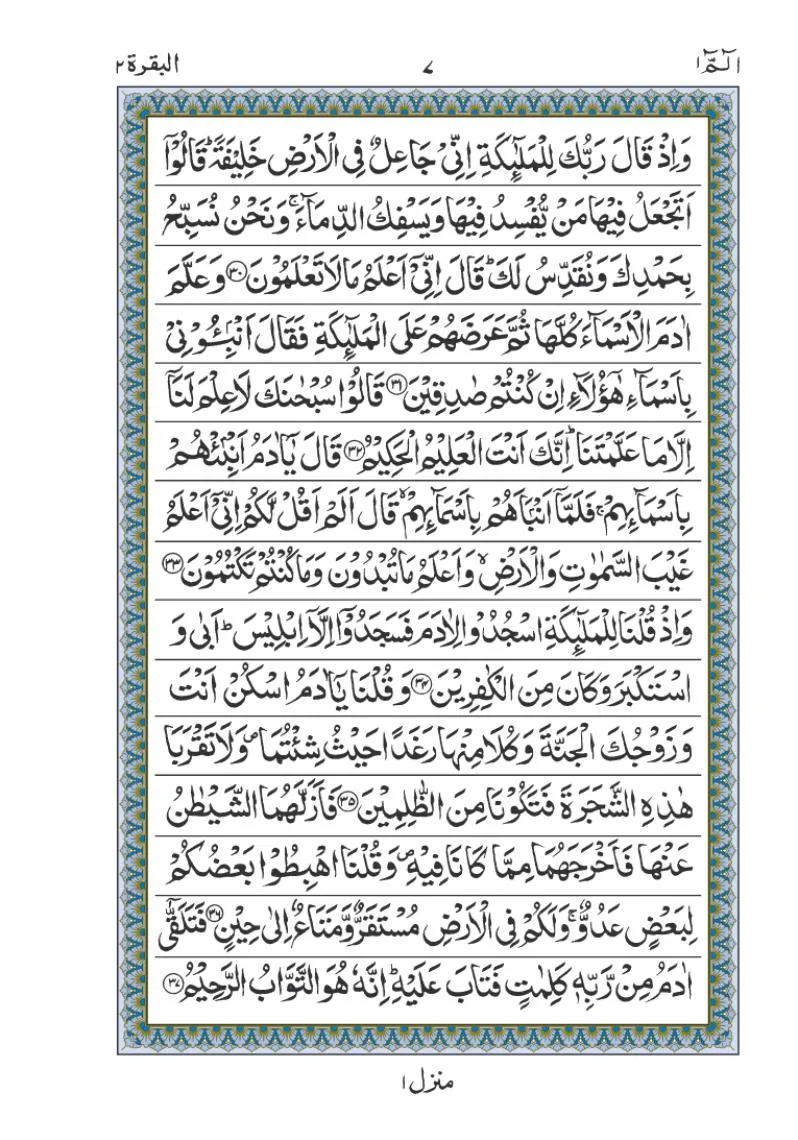 الٓمّٓ ۱ ۷ البقرة ۲
وَاِذْ قَالَ رَبُّكَ لِلْمَلٰٓئِكَةِ اِنِّیْ جَاعِلٌ فِی الْاَرْضِ خَلِیْفَةًؕ قَالُوْۤا
اَتَجْعَلُ فِیْهَا مَنْ یُّفْسِدُ فِیْهَا وَیَسْفِكُ الدِّمَآءَۚ وَنَحْنُ نُسَبِّحُ
بِحَمْدِكَ وَنُقَدِّسُ لَكَؕ قَالَ اِنِّیْۤ اَعْلَمُ مَا لَا تَعْلَمُوْنَ ۳۰ وَعَلَّمَ
اٰدَمَ الْاَسْمَآءَ كُلَّهَا ثُمَّ عَرَضَهُمْ عَلَی الْمَلٰٓئِكَةِ فَقَالَ اَنْۢبِـُٔوْنِیْ
بِاَسْمَآءِ هٰۤؤُلَآءِ اِنْ كُنْتُمْ صٰدِقِیْنَ ۳۱ قَالُوْا سُبْحٰنَكَ لَا عِلْمَ لَنَاۤ
اِلَّا مَا عَلَّمْتَنَاؕ اِنَّكَ اَنْتَ الْعَلِیْمُ الْحَكِیْمُ ۳۲ قَالَ یٰۤاٰدَمُ اَنْۢبِئْهُمْ
بِاَسْمَآئِهِمْۚ فَلَمَّاۤ اَنْۢبَاَهُمْ بِاَسْمَآئِهِمْۙ قَالَ اَلَمْ اَقُلْ لَّكُمْ اِنِّیْۤ اَعْلَمُ
غَیْبَ السَّمٰوٰتِ وَالْاَرْضِۙ وَاَعْلَمُ مَا تُبْدُوْنَ وَمَا كُنْتُمْ تَكْتُمُوْنَ ۳۳
وَاِذْ قُلْنَا لِلْمَلٰٓئِكَةِ اسْجُدُوْا لِاٰدَمَ فَسَجَدُوْۤا اِلَّاۤ اِبْلِیْسَؕ اَبٰی وَ
اسْتَكْبَرَ وَكَانَ مِنَ الْكٰفِرِیْنَ ۳۴ وَقُلْنَا یٰۤاٰدَمُ اسْكُنْ اَنْتَ
وَزَوْجُكَ الْجَنَّةَ وَكُلَا مِنْهَا رَغَدًا حَیْثُ شِئْتُمَا۪ وَلَا تَقْرَبَا
هٰذِهِ الشَّجَرَةَ فَتَكُوْنَا مِنَ الظّٰلِمِیْنَ ۳۵ فَاَزَلَّهُمَا الشَّیْطٰنُ
عَنْهَا فَاَخْرَجَهُمَا مِمَّا كَانَا فِیْهِ۪ وَقُلْنَا اهْبِطُوْا بَعْضُكُمْ
لِبَعْضٍ عَدُوٌّۚ وَلَكُمْ فِی الْاَرْضِ مُسْتَقَرٌّ وَّمَتَاعٌ اِلٰی حِیْنٍ ۳۶ فَتَلَقّٰۤی
اٰدَمُ مِنْ رَّبِّهٖ كَلِمٰتٍ فَتَابَ عَلَیْهِؕ اِنَّهٗ هُوَ التَّوَّابُ الرَّحِیْمُ ۳۷
منزل ۱